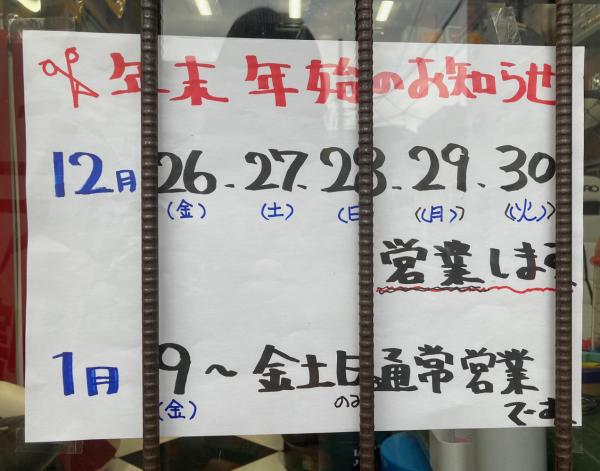 年末年始のお知らせ
12月 26. 27. 28. 29. 30
(金) (土) (日) (月) (火)
営業します
1月 9～金土日通常営業
(金) のみ でーす